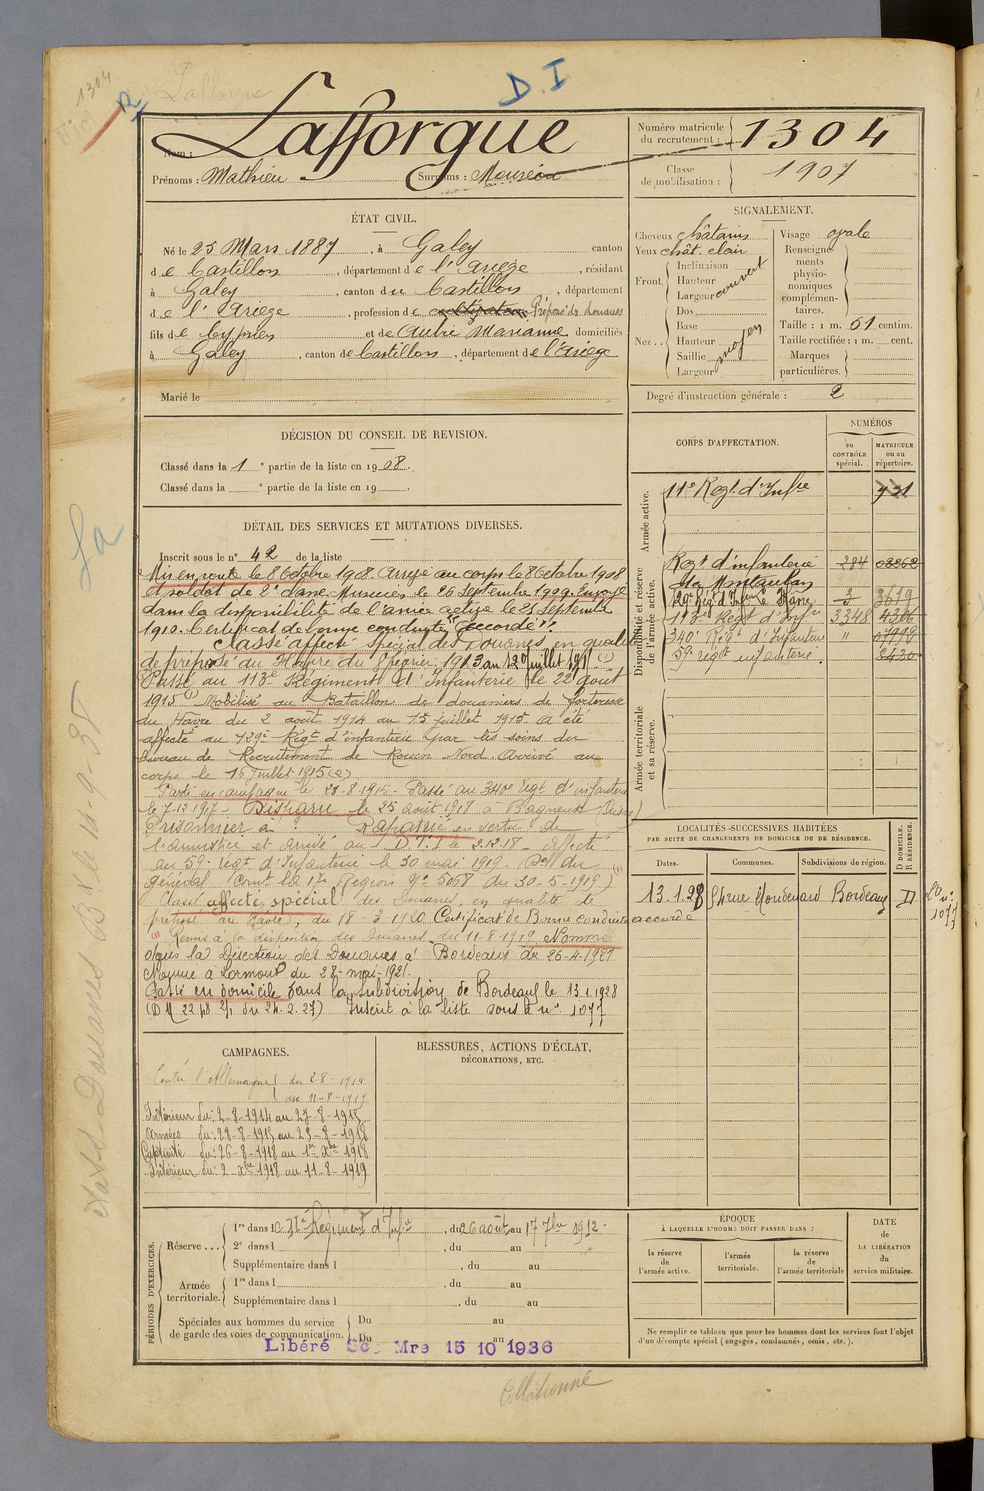 1304
D.I
Nom : Lafforgue
Prénoms : Mathieu Surnoms :
Numéro matricule du recrutement : 1304
Classe de mobilisation : 1907
ÉTAT CIVIL.
Né le 25 Mars 1887, à Galey canton
de Castillon, département de l'Ariège, résidant
à Galey, canton du Castillon, département
de l'Ariège, profession de cultivateur Préposé des douanes
fils de Cyprien et de Aubié Marianne domiciliés
à Galey, canton de Castillon, département de l'Ariège
Marié le
SIGNALEMENT.
Cheveux châtains
Yeux chât. clair
Front. Inclinaison
Hauteur
Largeur
couvert
Nez .. Dos
Base
Hauteur
Saillie
Largeur
moyen
Visage ovale
Renseignements physionomiques complémentaires.
Taille : 1 m. 61 centim.
Taille rectifiée : 1 m. cent.
Marques particulières.
Degré d'instruction générale : 2
DÉCISION DU CONSEIL DE REVISION.
Classé dans la 1e partie de la liste en 1908.
Classé dans la e partie de la liste en 19
DÉTAIL DES SERVICES ET MUTATIONS DIVERSES.
Inscrit sous le n° 42 de la liste
Mis en route le 8 Octobre 1908. Arrivé au corps le 8 Octobre 1908
et soldat de 2e classe. Musicien le 26 Septembre 1909. Envoyé
dans la disponibilité de l'armée active le 25 Septembre
1910. Certificat de bonne conduite "accordé".
Classé affecté spécial des Douanes en qualité
de préposé du Hâvre du 1 février 1912 au 12 Juillet 191
Passé au 113e Régiment d'Infanterie le 22 août
1915 Mobilisé au Bataillon de douaniers de forteresse
du Havre du 2 août 1914 au 15 juillet 1915 a été
affecté au 129e Régt d'infanterie par les soins du
bureau de Recrutement de Rouen Nord Arrivé au
corps le 16 Juillet 1915 (2)
Parti en campagne le 28-8-1915 - Passé au 340e régt d'infanterie
le 7-12-1917 - Disparu le 25 août 1918 à Bagneux (Aisne)
Prisonnier à ? Rapatrié en vertu de
l'armistice et arrivé au D.T.I le 2.12.18 - affecté
au 59e régt d'Infanterie le 30 mai 1919. (Don du
général Comt la 17e Région n° 5058 du 30-5-1919)
Classé affecté spécial des Douanes, en qualité de
préposé au Hâvre, du 18-3-1920 Certificat de Bonne conduite accordé
(1) Remis à la disposition des Douanes du 11-8-1919 Nommé
dans la Direction des Douanes à Bordeaux du 26-4-1921
Nommé à Lormont du 28-mai-1921.
Passé en domicile dans la subdivision de Bordeaux le 13.1.1928
(D.M 22 du 24.2.27) Inscrit à la liste sous le n° 1077
CORPS D'AFFECTATION.
NUMÉROS
au CONTRÔLE spécial.
MATRICULE ou au répertoire.
Armée active.
11e Régt d'Infie 921
Disponibilité et réserve de l'armée active.
Régt d'infanterie de Montauban 284 03262
129e Régt d'Infie Le Havre 3619
113e Régt d'Infie 3348 4306
340e Régt d'Infanterie "
59e régt infanterie.
Armée territoriale et sa réserve.
LOCALITÉS SUCCESSIVES HABITÉES
PAR SUITE DE CHANGEMENTS DE DOMICILE OU DE RÉSIDENCE.
Dates. Communes. Subdivisions de région. D DOMICILE. R RÉSIDENCE.
13.1.28 Bordeaux D
1077
CAMPAGNES.
Contre l'Allemagne du 2-8-1914
au 11-8-1919
Intérieur du : 2-8-1914 au 27-8-1915
Armées du : 28-8-1915 au 25-8-1918
Captivité du : 26-8-1918 au 1er Xbre 1918
Intérieur du : 2 Xbre 1918 au 11-8-1919
BLESSURES, ACTIONS D'ÉCLAT,
DÉCORATIONS, ETC.
PÉRIODES D'EXERCICES.
Réserve ... 1re dans l e 11e Régiment d'Infie, du 26 août au 17 7bre 1912.
2e dans l , du au
Supplémentaire dans l , du au
Armée territoriale. 1re dans l , du au
Supplémentaire dans l , du au
Spéciales aux hommes du service de garde des voies de communication. Du au
Du au
Libéré Sce Mre 15 10 1936
ÉPOQUE
À LAQUELLE L'HOMME DOIT PASSER DANS :
la réserve de l'armée active.
l'armée territoriale.
la réserve de l'armée territoriale
DATE de LA LIBÉRATION du service militaire.
Ne remplir ce tableau que pour les hommes dont les services font l'objet
d'un décompte spécial (engagés, condamnés, omis, etc.).
Collationné